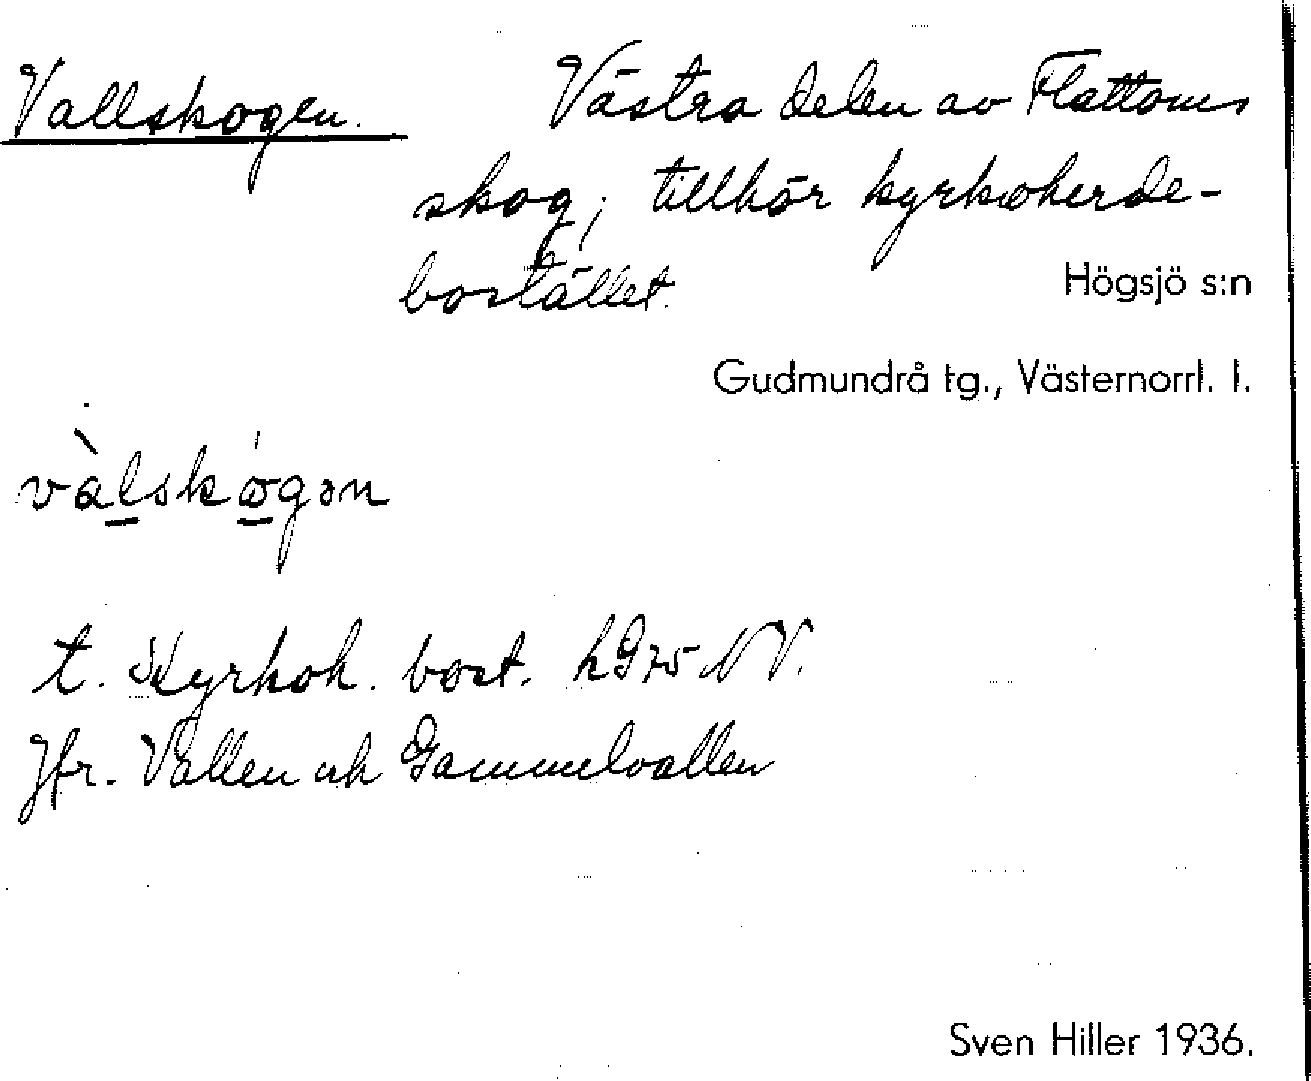 Vallskogen. Västra delen av Flattoms
skog; tillhör kyrkoherde-
bostället.
Högsjö s:n
Gudmundrå tg., Västernorrl. l.
t. Kyrkoh. bost. NV.
Jfr. Vallen och Gammelvallen
Sven Hiller 1936.